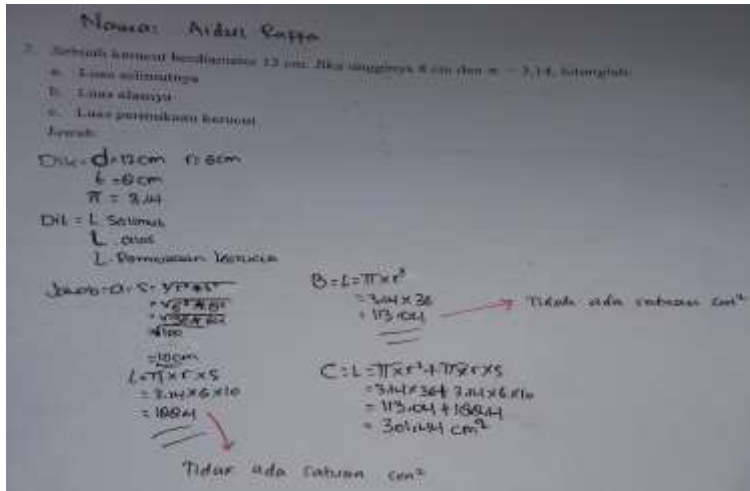 Nama: Aidul Raffa
2. Sebuah kerucut berdiameter 12 cm. Jika tingginya 8 cm dan π = 3,14, hitunglah:
a. Luas selimutnya
b. Luas alasnya
c. Luas permukaan kerucut
Jawab:
Dik = d = 12 cm r = 6 cm
t = 8 cm
π = 3,14
Dit = L. Selimut
L. alas
L. Permukaan kerucut
Jawab = a = s = √r² + t²
= √6² + 8²
= √36 + 64
√100
= 10 cm
L = π x r x s
= 3.14 x 6 x 10
= 188,4
Tidak ada satuan cm²
B = L = π x r²
= 3,14 x 36
= 113,04
Tidak ada satuan cm²
C = L = π x r² + π x r x s
= 3,14 x 36 + 3,14 x 6 x 10
= 113,04 + 188,4
= 301,44 cm²